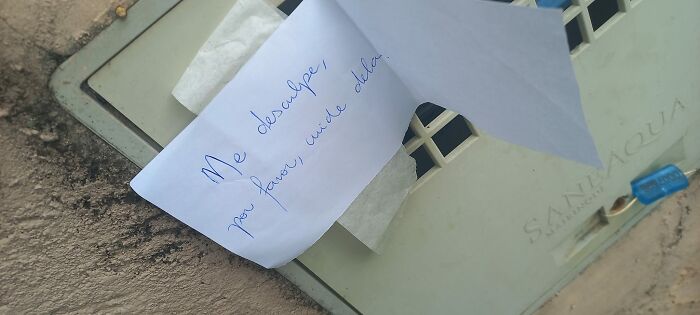 Me desculpe,
por favor, cuide dela.
SANEAQUA